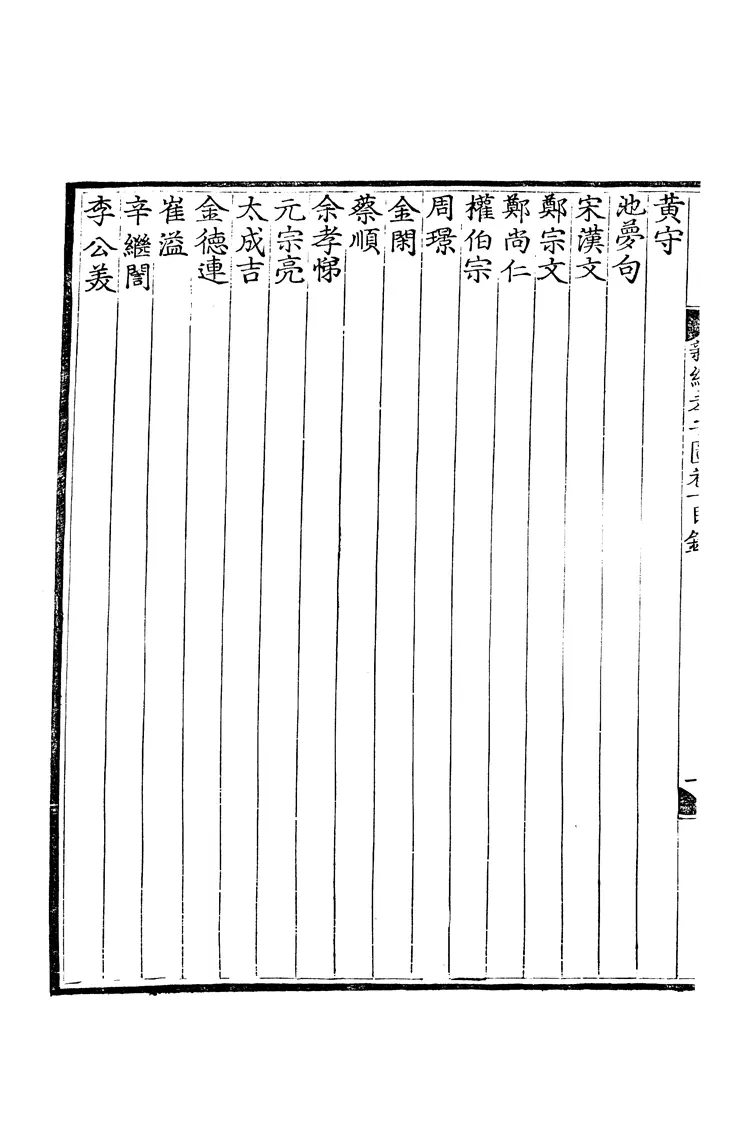 黄守
池夣句
宋漢文
鄭宗文
鄭尚仁
權伯宗
周璟
金閑
蔡順
余孝悌
元宗亮
太成吉
金德連
崔溢
辛繼誾
李公美
目錄
一